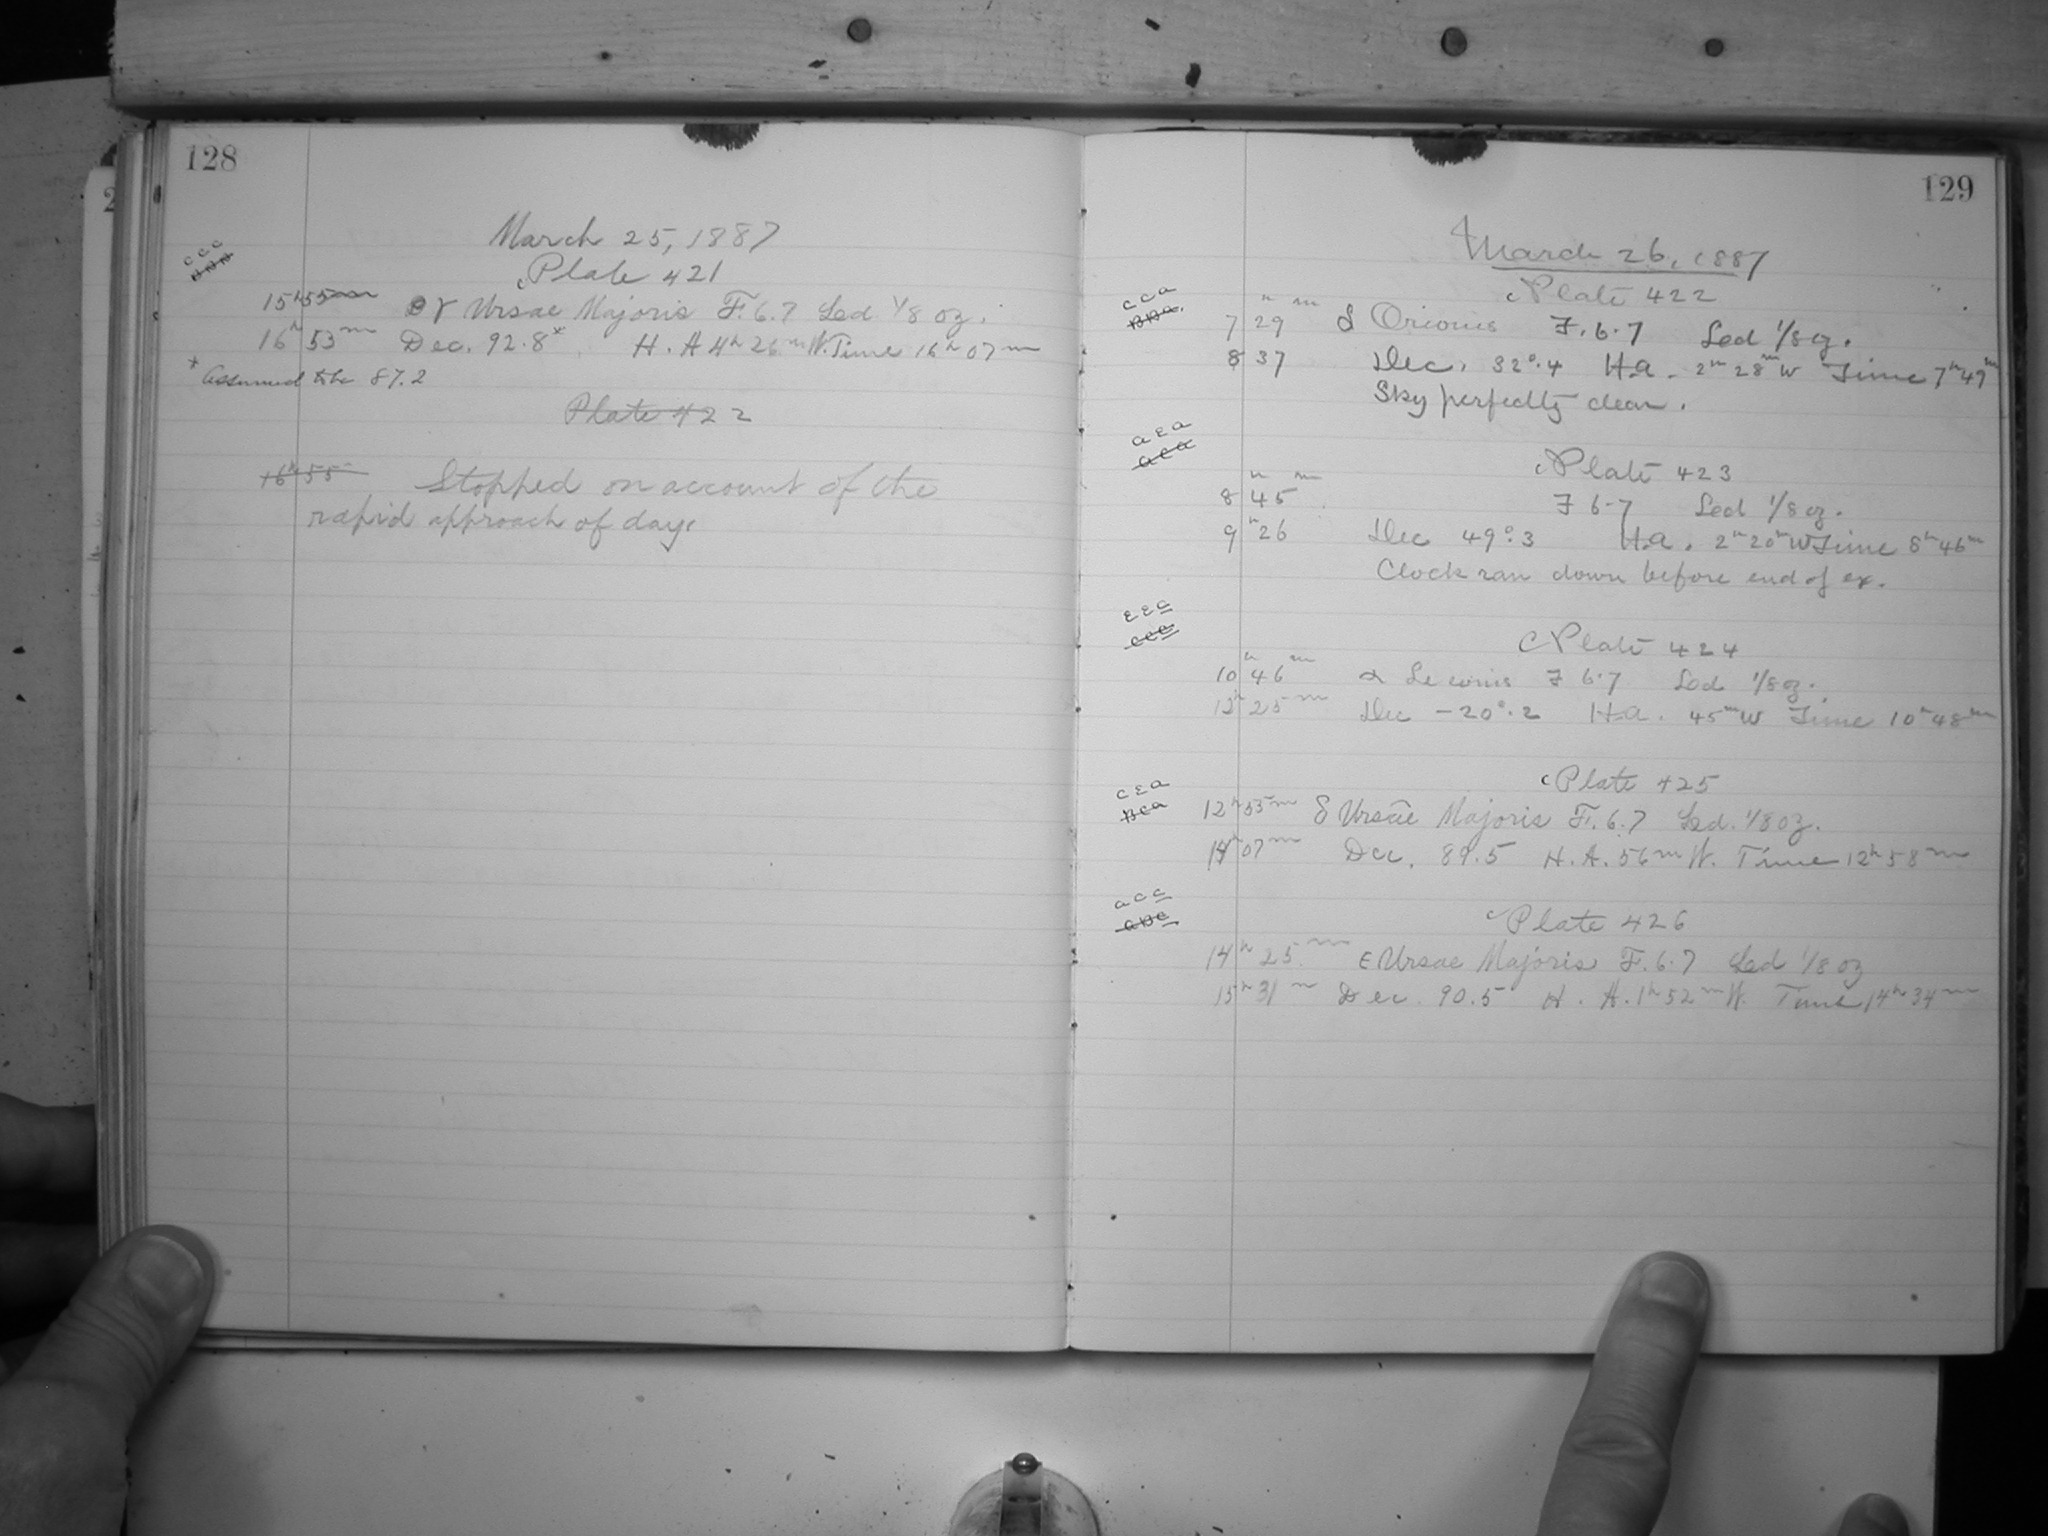 128
March 25, 1887
c Plate 421
c c c
15h 55m γ Ursae Majoris F. 6.7 Sed 1/8 oz.
16h 53m Dec. 92.8* H. A 4h 26m W. Time 16h 07m
* Assumed to be 87.2
Plate 422
16h 55 Stopped on account of the
rapid approach of day.
129
March 26, 1887
c Plate 422
c c a
7h 29m δ Orionis F. 6.7 Sed 1/8 oz.
8 37 Dec. 32°.4 H.a. 2h 28m W Time 7h 49m
Sky perfectly clear.
a ε a
aca
c Plate 423
8h 45m F 6.7 Sed 1/8 oz.
9h 26 Dec 49°.3 H.a. 2h 20m W Time 8h 46m
Clock ran down before end of ex.
ε ε c
c Plate 424
10h 46m α Leonis F 6.7 Sed 1/8 oz.
12h 25m Dec -20°.2 H.a. 45m W Time 10h 48m
c ε a
Bca
c Plate 425
12h 53m δ Ursae Majoris F. 6.7 Sed. 1/8 oz.
14h 07m Dec. 89.5 H. A. 56m W. Time 12h 58m
a c c
aBc
c Plate 426
14h 25m ε Ursae Majoris F. 6.7 Sed 1/8 oz
15h 31m Dec. 90.5 H. A. 1h 52m W. Time 14h 34m